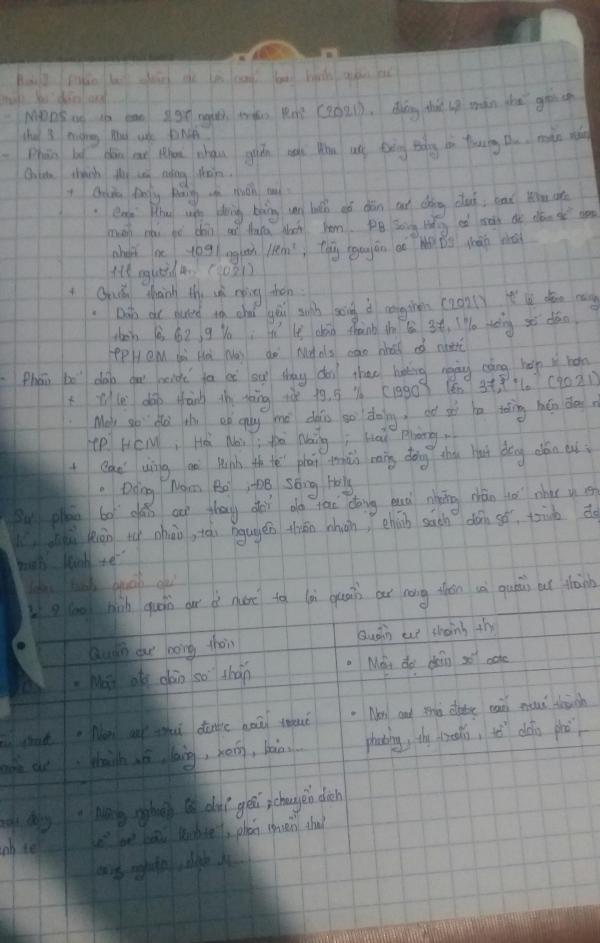 Bài 2 Phân bố dân cư và các loại hình quần cư
bố dân cư
- MĐDS nc ta cao 297 người trên km² (2021), đứng thứ
thứ 3 trong khu vực ĐNA
- Phân bố dân cư khác nhau giữa các khu vực Đồng Bằng và Trung Du, miền núi
Giữa thành thị và nông thôn.
+ Giữa Đồng Bằng và miền núi:
• Các khu vực đồng bằng ven biển có dân cư đông đúc, các khu vực
miền núi có dân cư thưa thớt hơn. ĐB Sông Hồng có mật độ dân số cao
nhất nc 1091 người/km², Tây nguyên có MĐDS thấp nhất
111 người/km (2021)
+ Giữa thành thị và nông thôn:
• Dân cư nước ta chủ yếu sinh sống ở nông thôn (2021) Tỉ lệ dân nông
thôn là 62,9%; tỉ lệ dân thành thị là 37,1% tổng số dân.
TPHCM và Hà Nội có Mđds cao nhất cả nước
- Phân bố dân cư nước ta có sự thay đổi theo hướng ngày càng hợp lí hơn
+ Tỉ lệ dân thành thị tăng từ 19,5% (1990) lên 37,1% (2021)
Một số đô thị có quy mô dân số đông, cơ sở hạ tầng hiện đại n
TP HCM, Hà Nội, Đà Nẵng, Hải Phòng,..
+ Các vùng có kinh tế phát triển năng động thu hút đông dân cư:
• Đông Nam Bộ, ĐB Sông Hồng
Sự phân bố dân cư thay đổi do tác động của những nhân tố như vị
lí, điều kiện tự nhiên, tài nguyên thiên nhiên, chính sách dân số, trình độ
kinh tế
loại hình quần cư
2 loại hình quần cư ở nước ta là quần cư nông thôn và quần cư thành
Quần cư nông thôn
Quần cư thành thị
• Mật độ dân số thấp
• Mật độ dân số cao
• Nơi cư trú được cấu trúc
thành xã, làng, xóm, bản,...
• Nơi cư trú được cấu trúc thành
phường, thị trấn, tổ dân phố...
• Nông nghiệp là chủ yếu, chuyển dịch
về cơ cấu kinh tế, phát triển thêm
công nghiệp, dịch